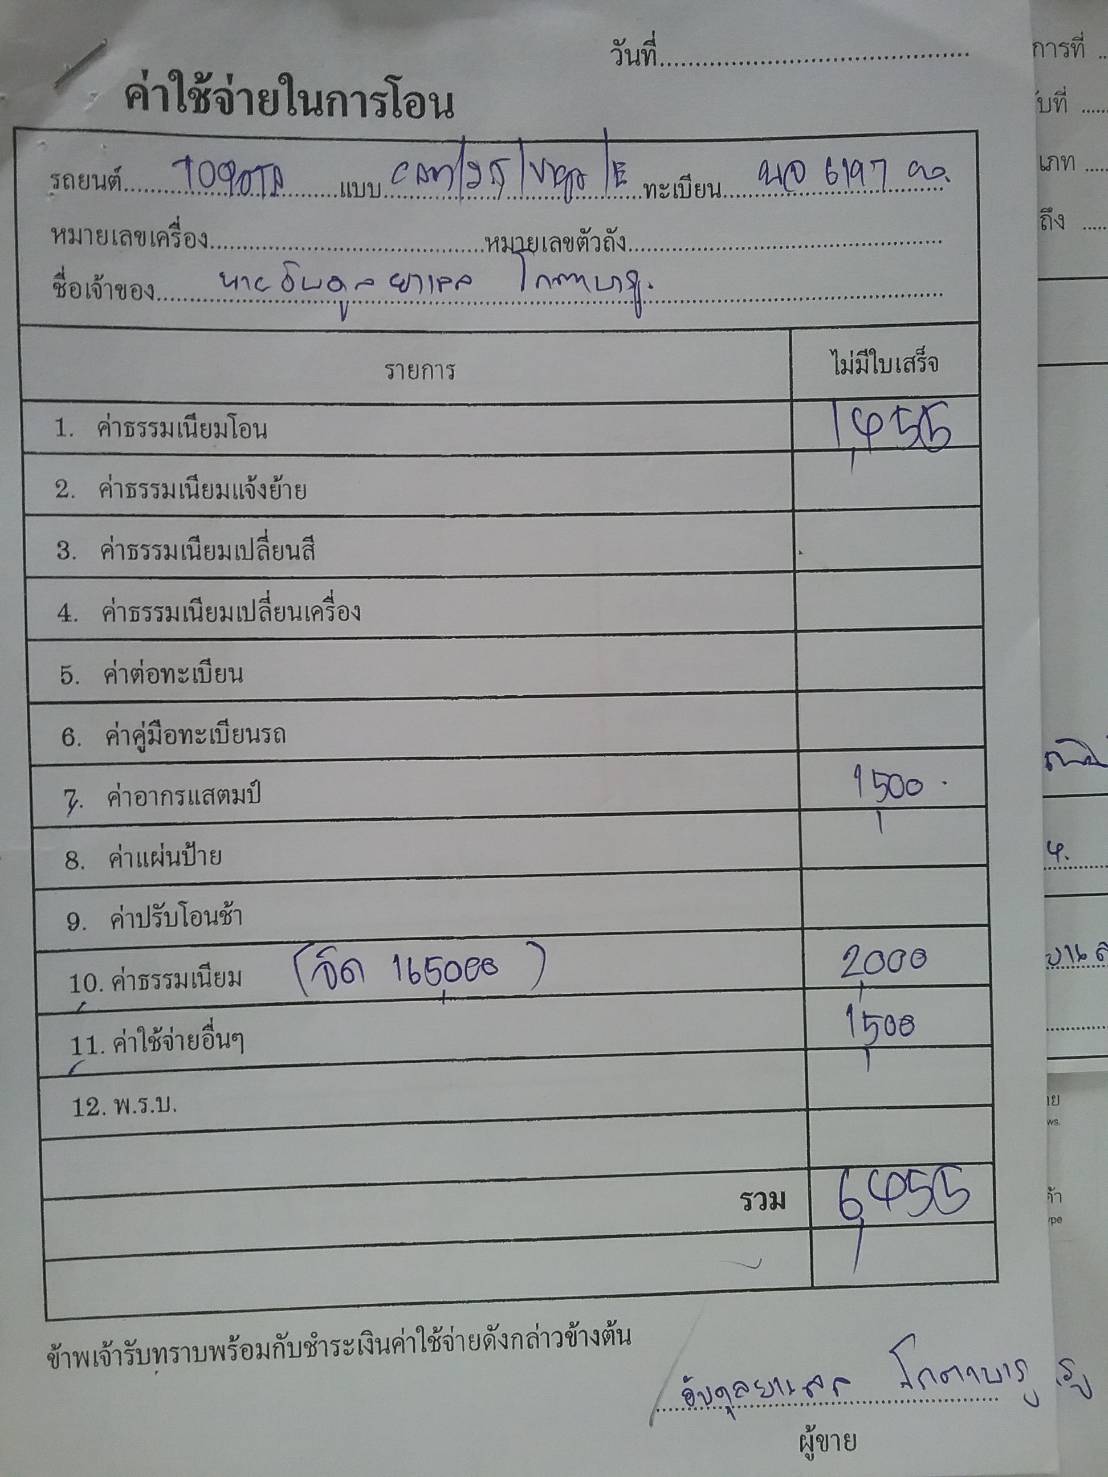 วันที่
ค่าใช้จ่ายในการโอน
รถยนต์ TOYOTA แบบ ทะเบียน 6197
หมายเลขเครื่อง หมายเลขตัวถัง
ชื่อเจ้าของ นาย
รายการ ไม่มีใบเสร็จ
1. ค่าธรรมเนียมโอน 1,455
2. ค่าธรรมเนียมแจ้งย้าย
3. ค่าธรรมเนียมเปลี่ยนสี
4. ค่าธรรมเนียมเปลี่ยนเครื่อง
5. ค่าต่อทะเบียน
6. ค่าคู่มือทะเบียนรถ
7. ค่าอากรแสตมป์ 1,500
8. ค่าแผ่นป้าย
9. ค่าปรับโอนช้า
10. ค่าธรรมเนียม (จัด 165,000) 2,000
11. ค่าใช้จ่ายอื่นๆ 1,500
12. พ.ร.บ.
รวม 6,455
ข้าพเจ้ารับทราบพร้อมกับชำระเงินค่าใช้จ่ายดังกล่าวข้างต้น
ผู้ขาย
การที่
เภท
ถึง